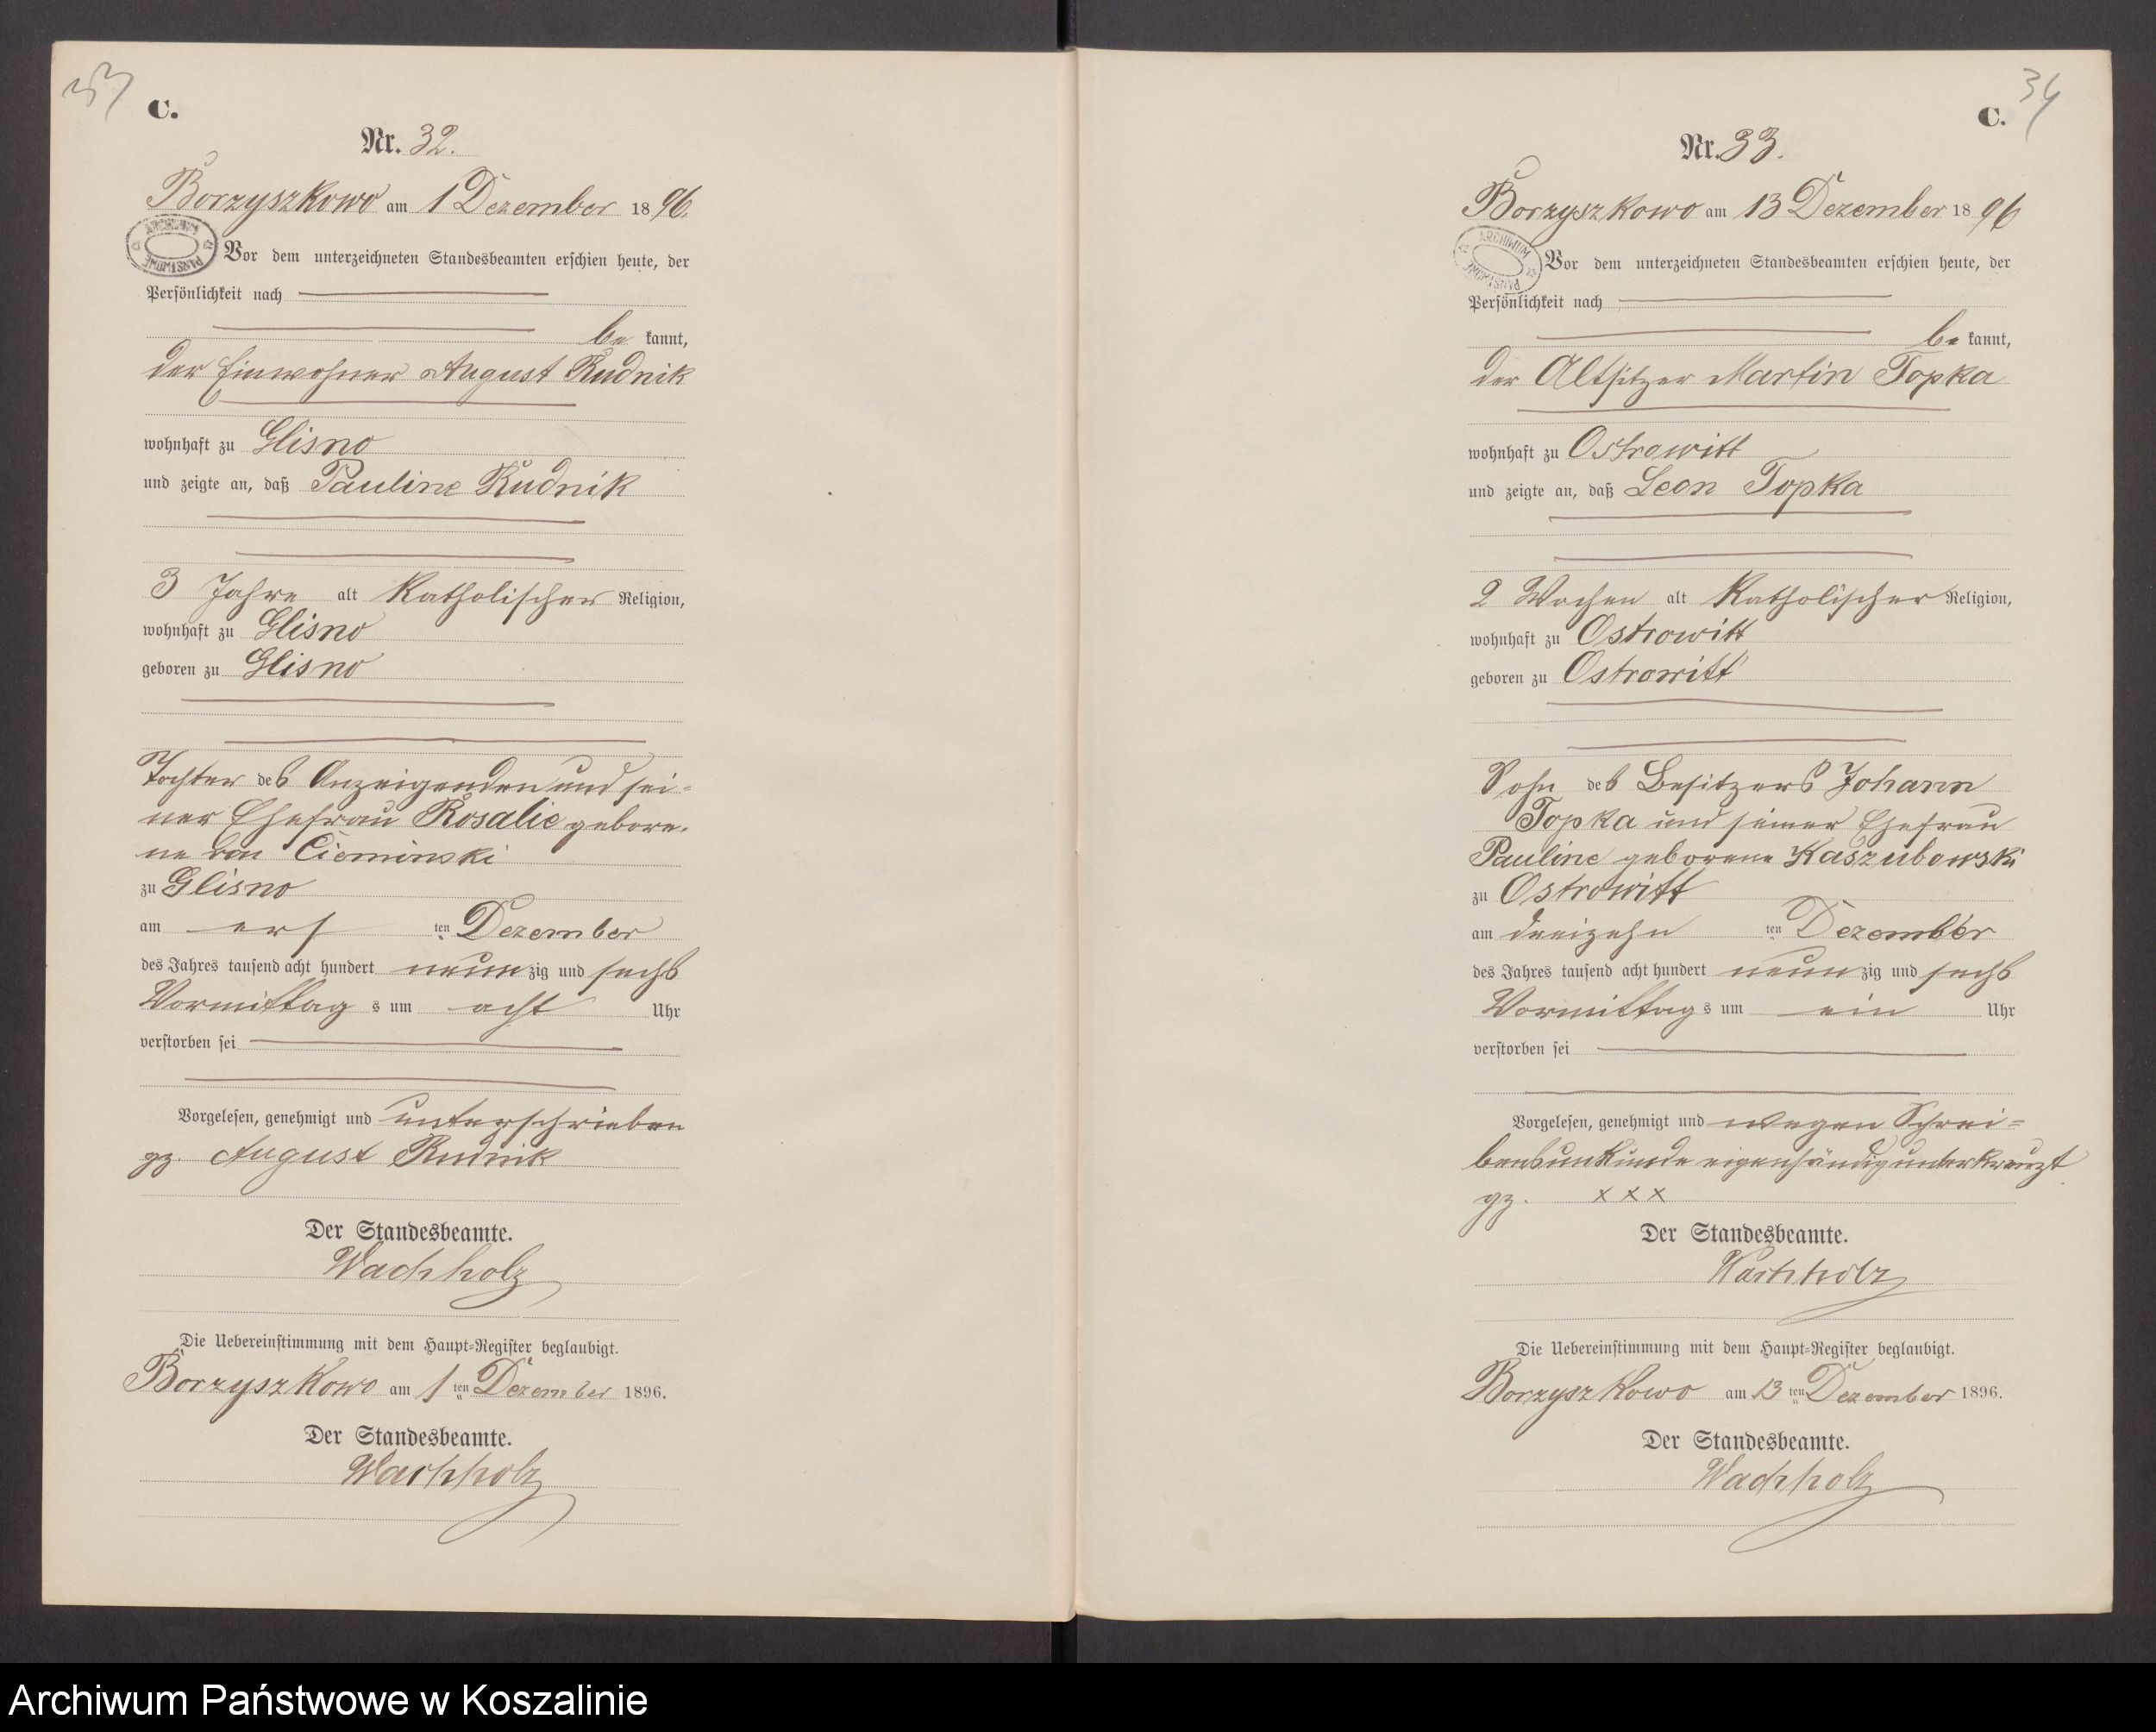 C.
Nr. 32.
Borzyszkowo am 1 Dezember 1896.
ARCHIWUM PAŃSTWOWE
Vor dem unterzeichneten Standesbeamten erschien heute, der
Persönlichkeit nach
be kannt,
der Einwohner August Rudnik
wohnhaft zu Glisno
und zeigte an, daß Pauline Rudnik
3 Jahre alt Katholischer Religion,
wohnhaft zu Glisno
geboren zu Glisno
Tochter des Anzeigenden und sei-
ner Ehefrau Rosalie gebore-
ne von Cieminski
zu Glisno
am erst ten Dezember
des Jahres tausend acht hundert neun zig und sechs
Vormittag s um acht Uhr
verstorben sei
Vorgelesen, genehmigt und unterschrieben
gz. August Rudnik
Der Standesbeamte.
Wachholz
Die Uebereinstimmung mit dem Haupt-Register beglaubigt.
Borzyszkowo am 1 ten Dezember 1896.
Der Standesbeamte.
Wachholz
34
C.
Nr. 33.
Borzyszkowo am 13 Dezember 1896
ARCHIWUM PAŃSTWOWE
Vor dem unterzeichneten Standesbeamten erschien heute, der
Persönlichkeit nach
be kannt,
der Altsitzer Martin Topka
wohnhaft zu Ostrowitt
und zeigte an, daß Leon Topka
2 Wochen alt Katholischer Religion,
wohnhaft zu Ostrowitt
geboren zu Ostrowitt
Sohn des Besitzers Johann
Topka und seiner Ehefrau
Pauline geborene Kaszubowski
zu Ostrowitt
am dreizehn ten Dezember
des Jahres tausend acht hundert neun zig und sechs
Vormittag s um ein Uhr
verstorben sei
Vorgelesen, genehmigt und wegen Schrei-
bensunkunde eigenhändig unterkreuzt
gz. x x x
Der Standesbeamte.
Wachholz
Die Uebereinstimmung mit dem Haupt-Register beglaubigt.
Borzyszkowo am 13 ten Dezember 1896.
Der Standesbeamte.
Wachholz
Archiwum Państwowe w Koszalinie